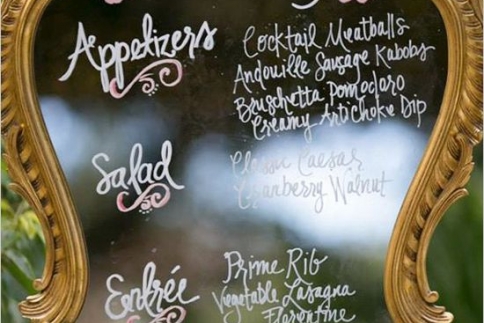 Appetizers
Cocktail Meatballs
Andouille Sausage Kabobs
Bruschetta Pomodoro
Creamy Artichoke Dip
Salad
Classic Caesar
Cranberry Walnut
Entrée
Prime Rib
Vegetable Lasagna
Florentine